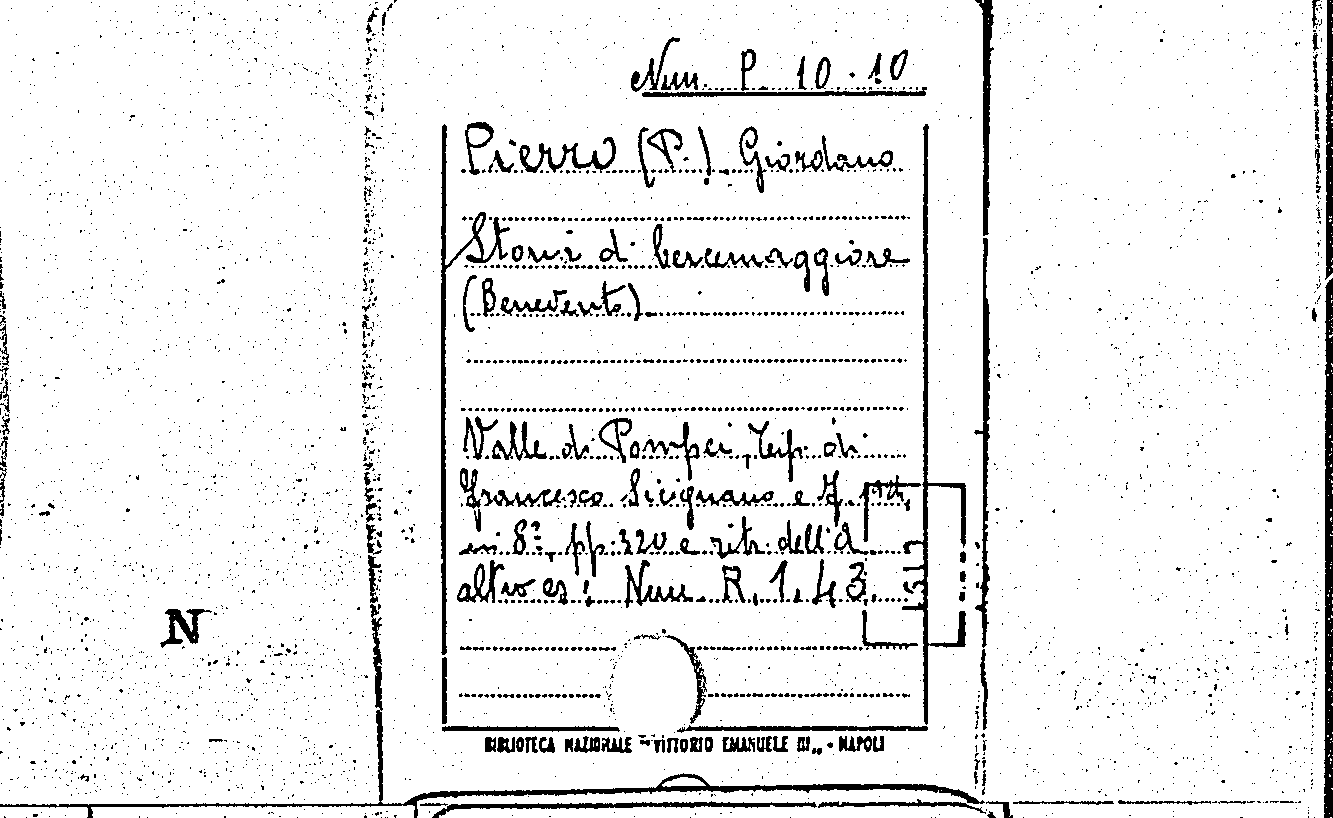 Num. P. 10.10
Pierro (P.) Giordano
Storia di Cercemaggiore
(Benevento).
Valle di Pompei, Tip. di
Francesco Sicignano e F.
in 8º, pp. 320 e ritr. dell'A
altro es: Num. R. 1. 43.
N
BIBLIOTECA NAZIONALE "VITTORIO EMANUELE III" - NAPOLI